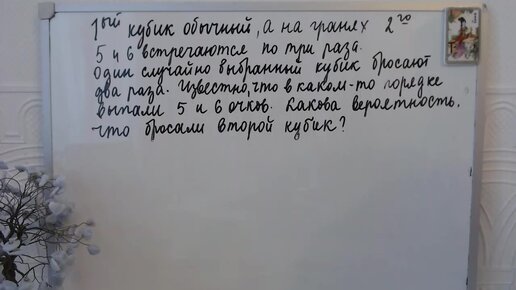 1ый кубик обычный, а на гранях 2го
5 и 6 встречаются по три раза.
Один случайно выбранный кубик бросают
два раза. Известно, что в каком-то порядке
выпали 5 и 6 очков. Какова вероятность,
что бросали второй кубик?